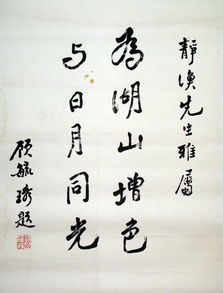 静渔先生雅属
为湖山增色
与日月同光
顾毓琇题